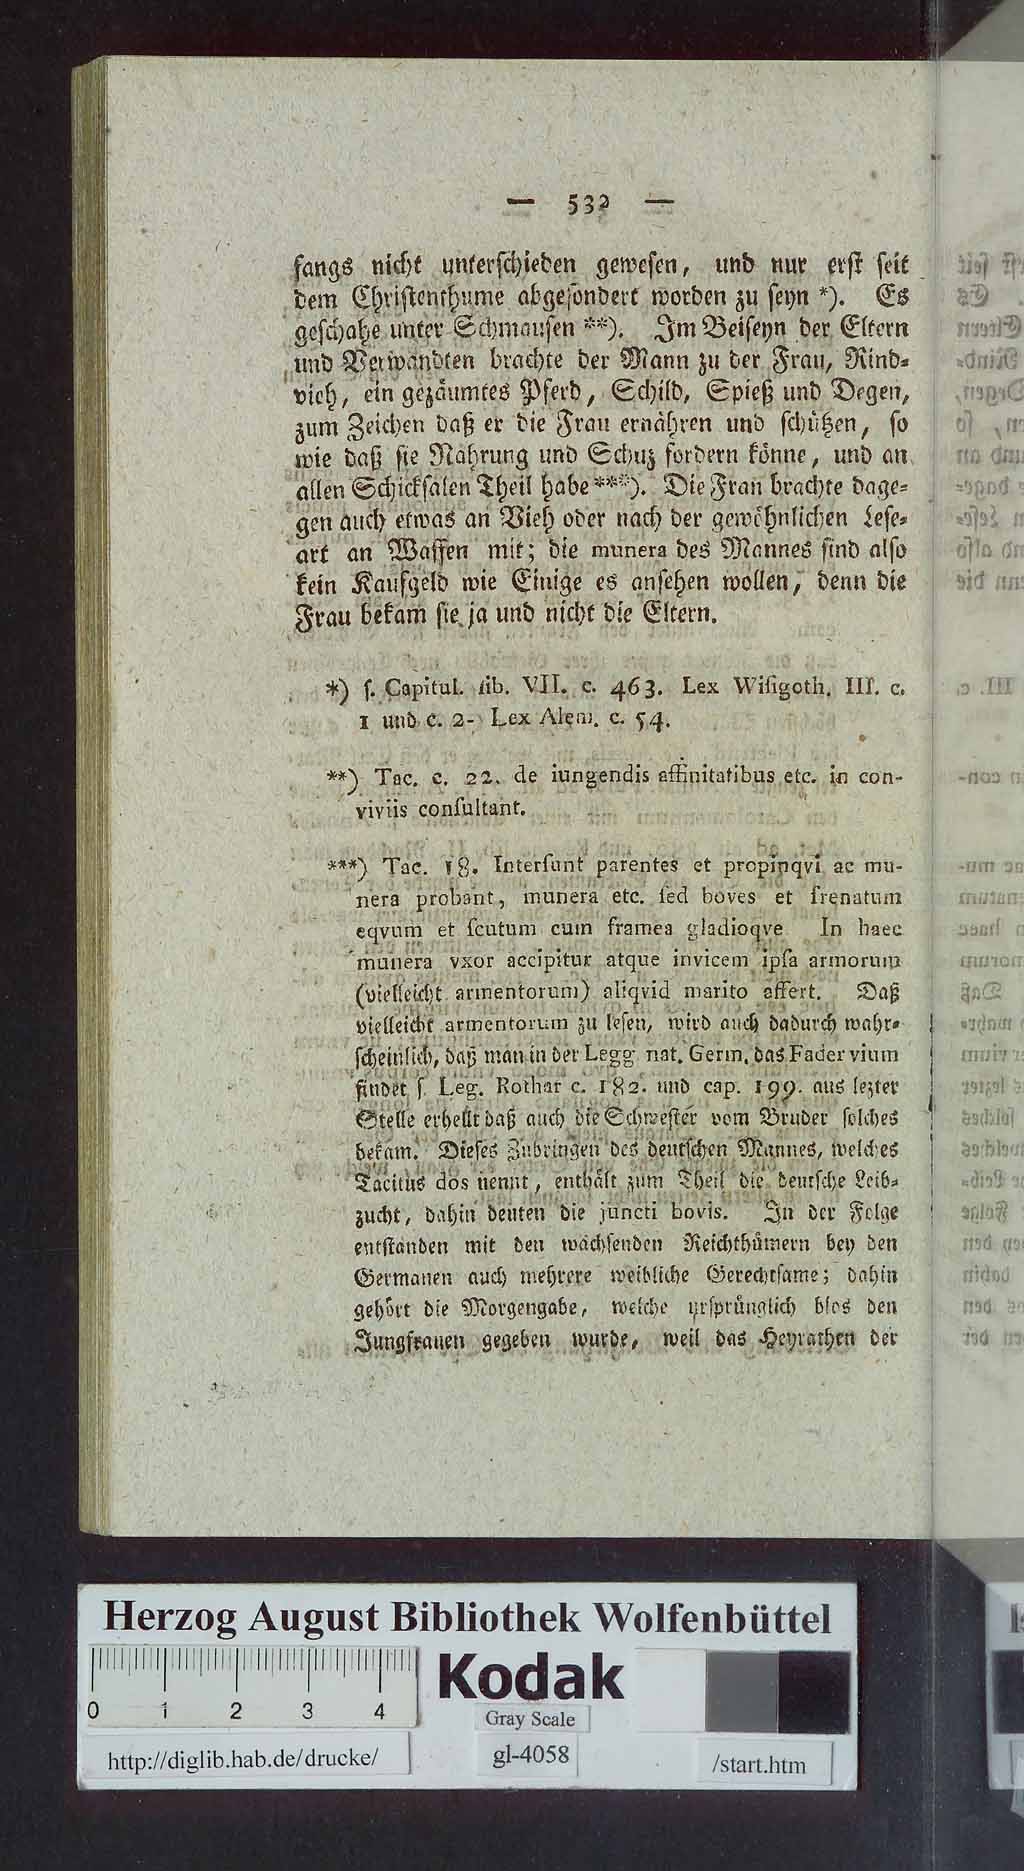 — 532 —
fangs nicht unterschieden gewesen, und nur erst seit
dem Christenthume abgesondert worden zu seyn *). Es
geschahe unter Schmausen **). Im Beiseyn der Eltern
und Verwandten brachte der Mann zu der Frau, Rind-
vieh, ein gezäumtes Pferd, Schild, Spieß und Degen,
zum Zeichen daß er die Frau ernähren und schützen, so
wie daß sie Nahrung und Schuz fordern könne, und an
allen Schicksalen Theil habe ***). Die Frau brachte dage-
gen auch etwas an Vieh oder nach der gewöhnlichen Lese-
art an Waffen mit; die munera des Mannes sind also
kein Kaufgeld wie Einige es ansehen wollen, denn die
Frau bekam sie ja und nicht die Eltern.
*) ſ. Capitul. lib. VII. c. 463. Lex Wiſigoth. III. c.
1 und c. 2- Lex Alem. c. 54.
**) Tac. c. 22. de iungendis affinitatibus etc. in con-
viviis conſultant.
***) Tac. 18. Interſunt parentes et propinqvi ac mu-
nera probant, munera etc. ſed boves et frenatum
eqvum et ſcutum cum framea gladioqve In haec
munera vxor accipitur atque invicem ipſa armorum
(vielleicht armentorum) aliqvid marito affert. Daß
vielleicht armentorum zu lesen, wird auch dadurch wahr-
scheinlich, daß man in der Legg nat. Germ. das Fader vium
findet s. Leg. Rothar c. 182. und cap. 199. aus lezter
Stelle erhellt daß auch die Schwester vom Bruder solches
bekam. Dieses Zubringen des deutschen Mannes, welches
Tacitus dos nennt, enthält zum Theil die deutsche Leib-
zucht, dahin deuten die juncti bovis. In der Folge
entstanden mit den wachsenden Reichthümern bey den
Germanen auch mehrere weibliche Gerechtsame; dahin
gehört die Morgengabe, welche ursprünglich blos den
Jungfrauen gegeben wurde, weil das Heyrathen der
Herzog August Bibliothek Wolfenbüttel
0 1 2 3 4
Kodak
Gray Scale
http://diglib.hab.de/drucke/
gl-4058
/start.htm